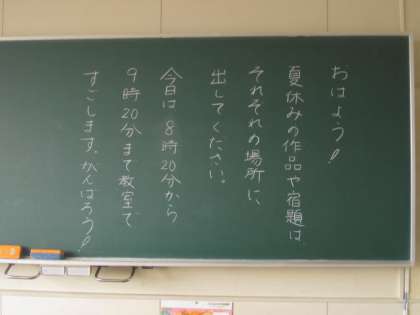 おはよう!
夏休みの作品や宿題は
それぞれの場所に、
出してください。
今日は8時20分から
9時20分まで教室で
すごします。がんばろう!